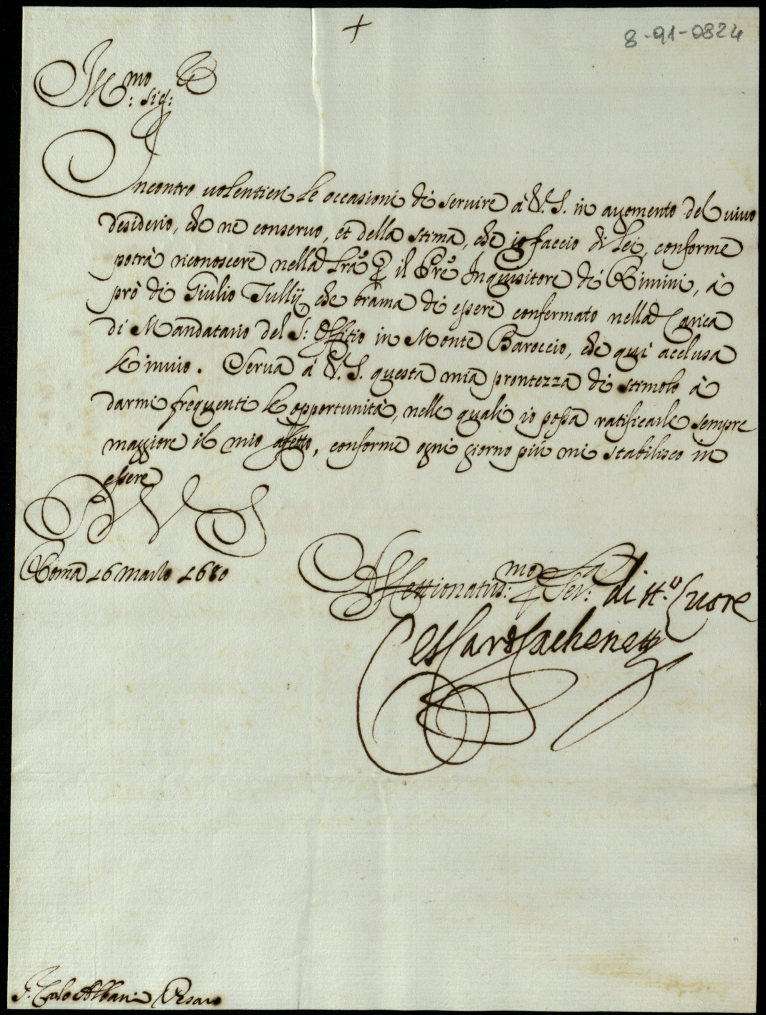 8-91-0824
Ill.mo Sig.
Incontro volentieri le occasioni di servire à V.S. in augmento del vivo
desiderio, che ne conservo, et della stima, che io faccio di Lei, conforme
potrà riconoscere nella lra p il Pre Inquisitore di Rimini, à
prò di Giulio Tullij che brama di essere confermato nella Carica
di Mandatario del S: Offitio in Monte Baroccio, che qui acclusa
le invio. Serva à V.S. questa mia prontezza di stimolo à
darmi frequenti le opportunità, nelle quali io possa ratificarle sempre
maggiore il mio affetto, conforme ogni giorno più mi stabilisco in
essere
D V S
Roma 16 Marzo 1680
Affettionatis:mo Ser: di tt.o Cuore
Cesare Facheneti
S. Carlo Albani Pesaro